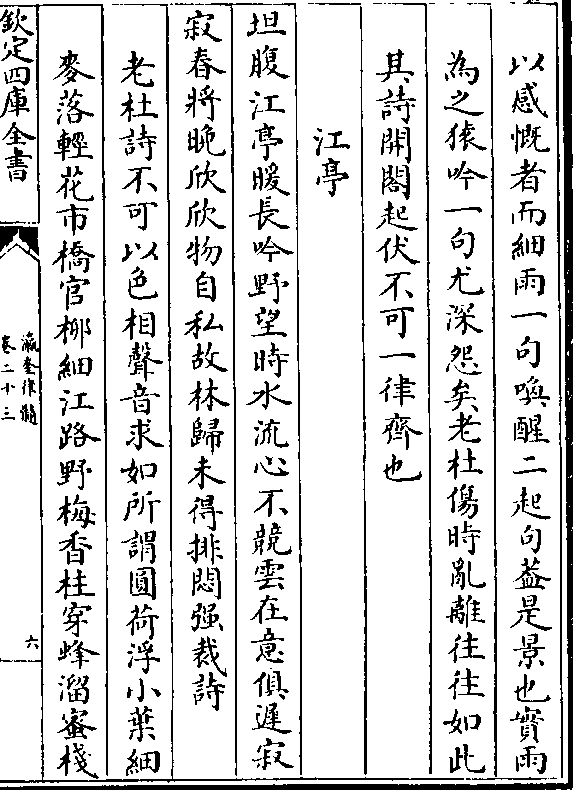 以感慨者而細雨一句喚醒二起句葢是景也實雨
為之猿吟一句尤深怨矣老杜傷時亂離往往如此
其詩開闔起伏不可一律齊也
江亭
坦腹江亭暖長吟野望時水流心不競雲在意俱遲寂
寂春將晚欣欣物自私故林歸未得排悶强裁詩
老杜詩不可以色相聲音求如所謂圓荷浮小葉細
麥落輕花市橋官栁細江路野梅香柱穿蜂溜蜜棧
欽定四庫全書
瀛奎律髓
卷二十三
六